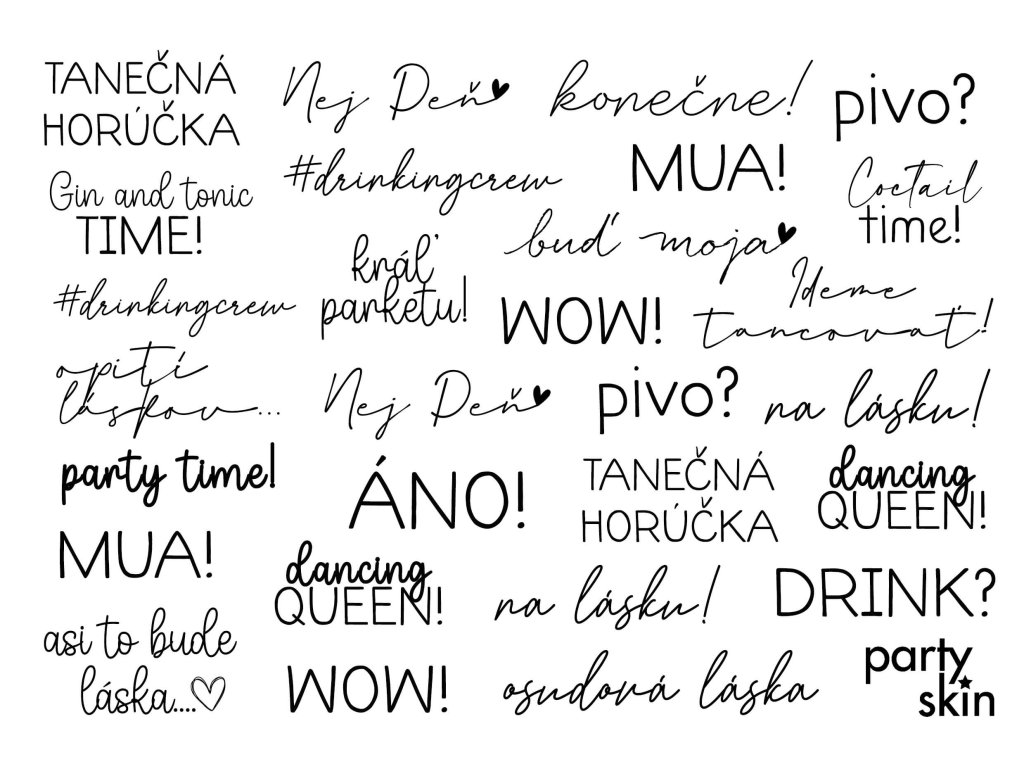 TANEČNÁ
HORÚČKA
Nej Deň
konečne!
pivo?
Gin and tonic
TIME!
#drinkingcrew
MUA!
Coctail
time!
kráľ
parketu!
buď moja
#drinkingcrew
WOW!
Ideme
tancovať!
opití
láskov...
Nej Deň
pivo?
na lásku!
party time!
ÁNO!
TANEČNÁ
HORÚČKA
dancing
QUEEN!
MUA!
dancing
QUEEN!
na lásku!
DRINK?
asi to bude
láska....
WOW!
osudová láska
party
skin